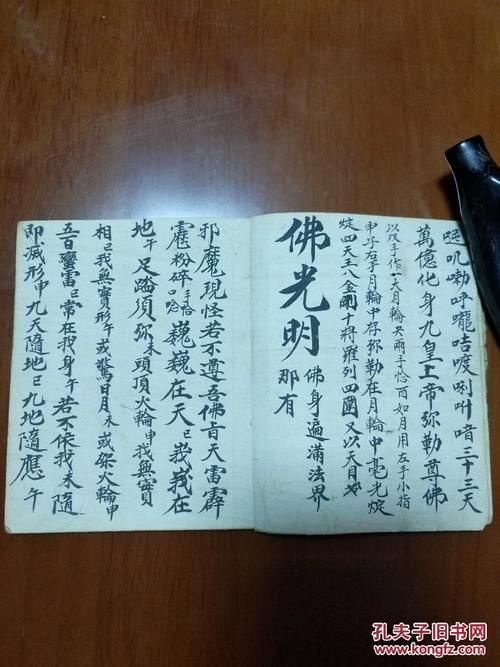 唵吼嘞呼嚨咭喥唎吽喑三十三天
萬億化身九皇上帝弥勒尊佛
以双手作一大月輪夾兩手恰酉如月用左手小指
申子右手月輪中存弥勒在月輪中毫光燦
燦四天王八金剛十将羅列四圍又以天月
佛光明
佛身遍滿法界
那有
邪魔現怪若不遵吾佛旨天雷霹
靂粉碎手恰口唸巍巍在天已我我在
地午足踏須弥未頭頂火輪申我無實
相已我無實形午或驚日月未或架火輪申
五百蠻雷已常在我身午若不依我未隨
即滅形申九天隨地已九地隨應午
孔夫子旧书网
www.kongfz.com